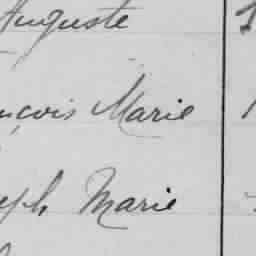 Auguste
nçois Marie
seph Marie